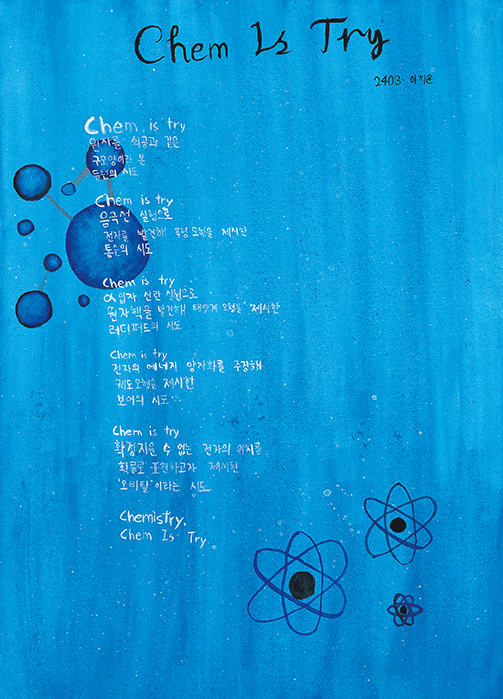 Chem Is Try
2403 이지은
Chem is try
원자를 쇠공과 같은
구모양이라 본
돌턴의 시도
Chem is try
음극선 실험으로
전자를 발견해 푸딩모형을 제시한
톰슨의 시도
Chem is try
α입자 산란 실험으로
원자핵을 발견해 태양계 모형을 제시한
러더퍼드의 시도
Chem is try
전자의 에너지 양자화를 주장해
궤도모형을 제시한
보어의 시도
Chem is try
확정지을 수 없는 전자의 위치를
확률로 표현하고자 제시된
'오비탈'이라는 시도
Chemistry,
Chem Is Try